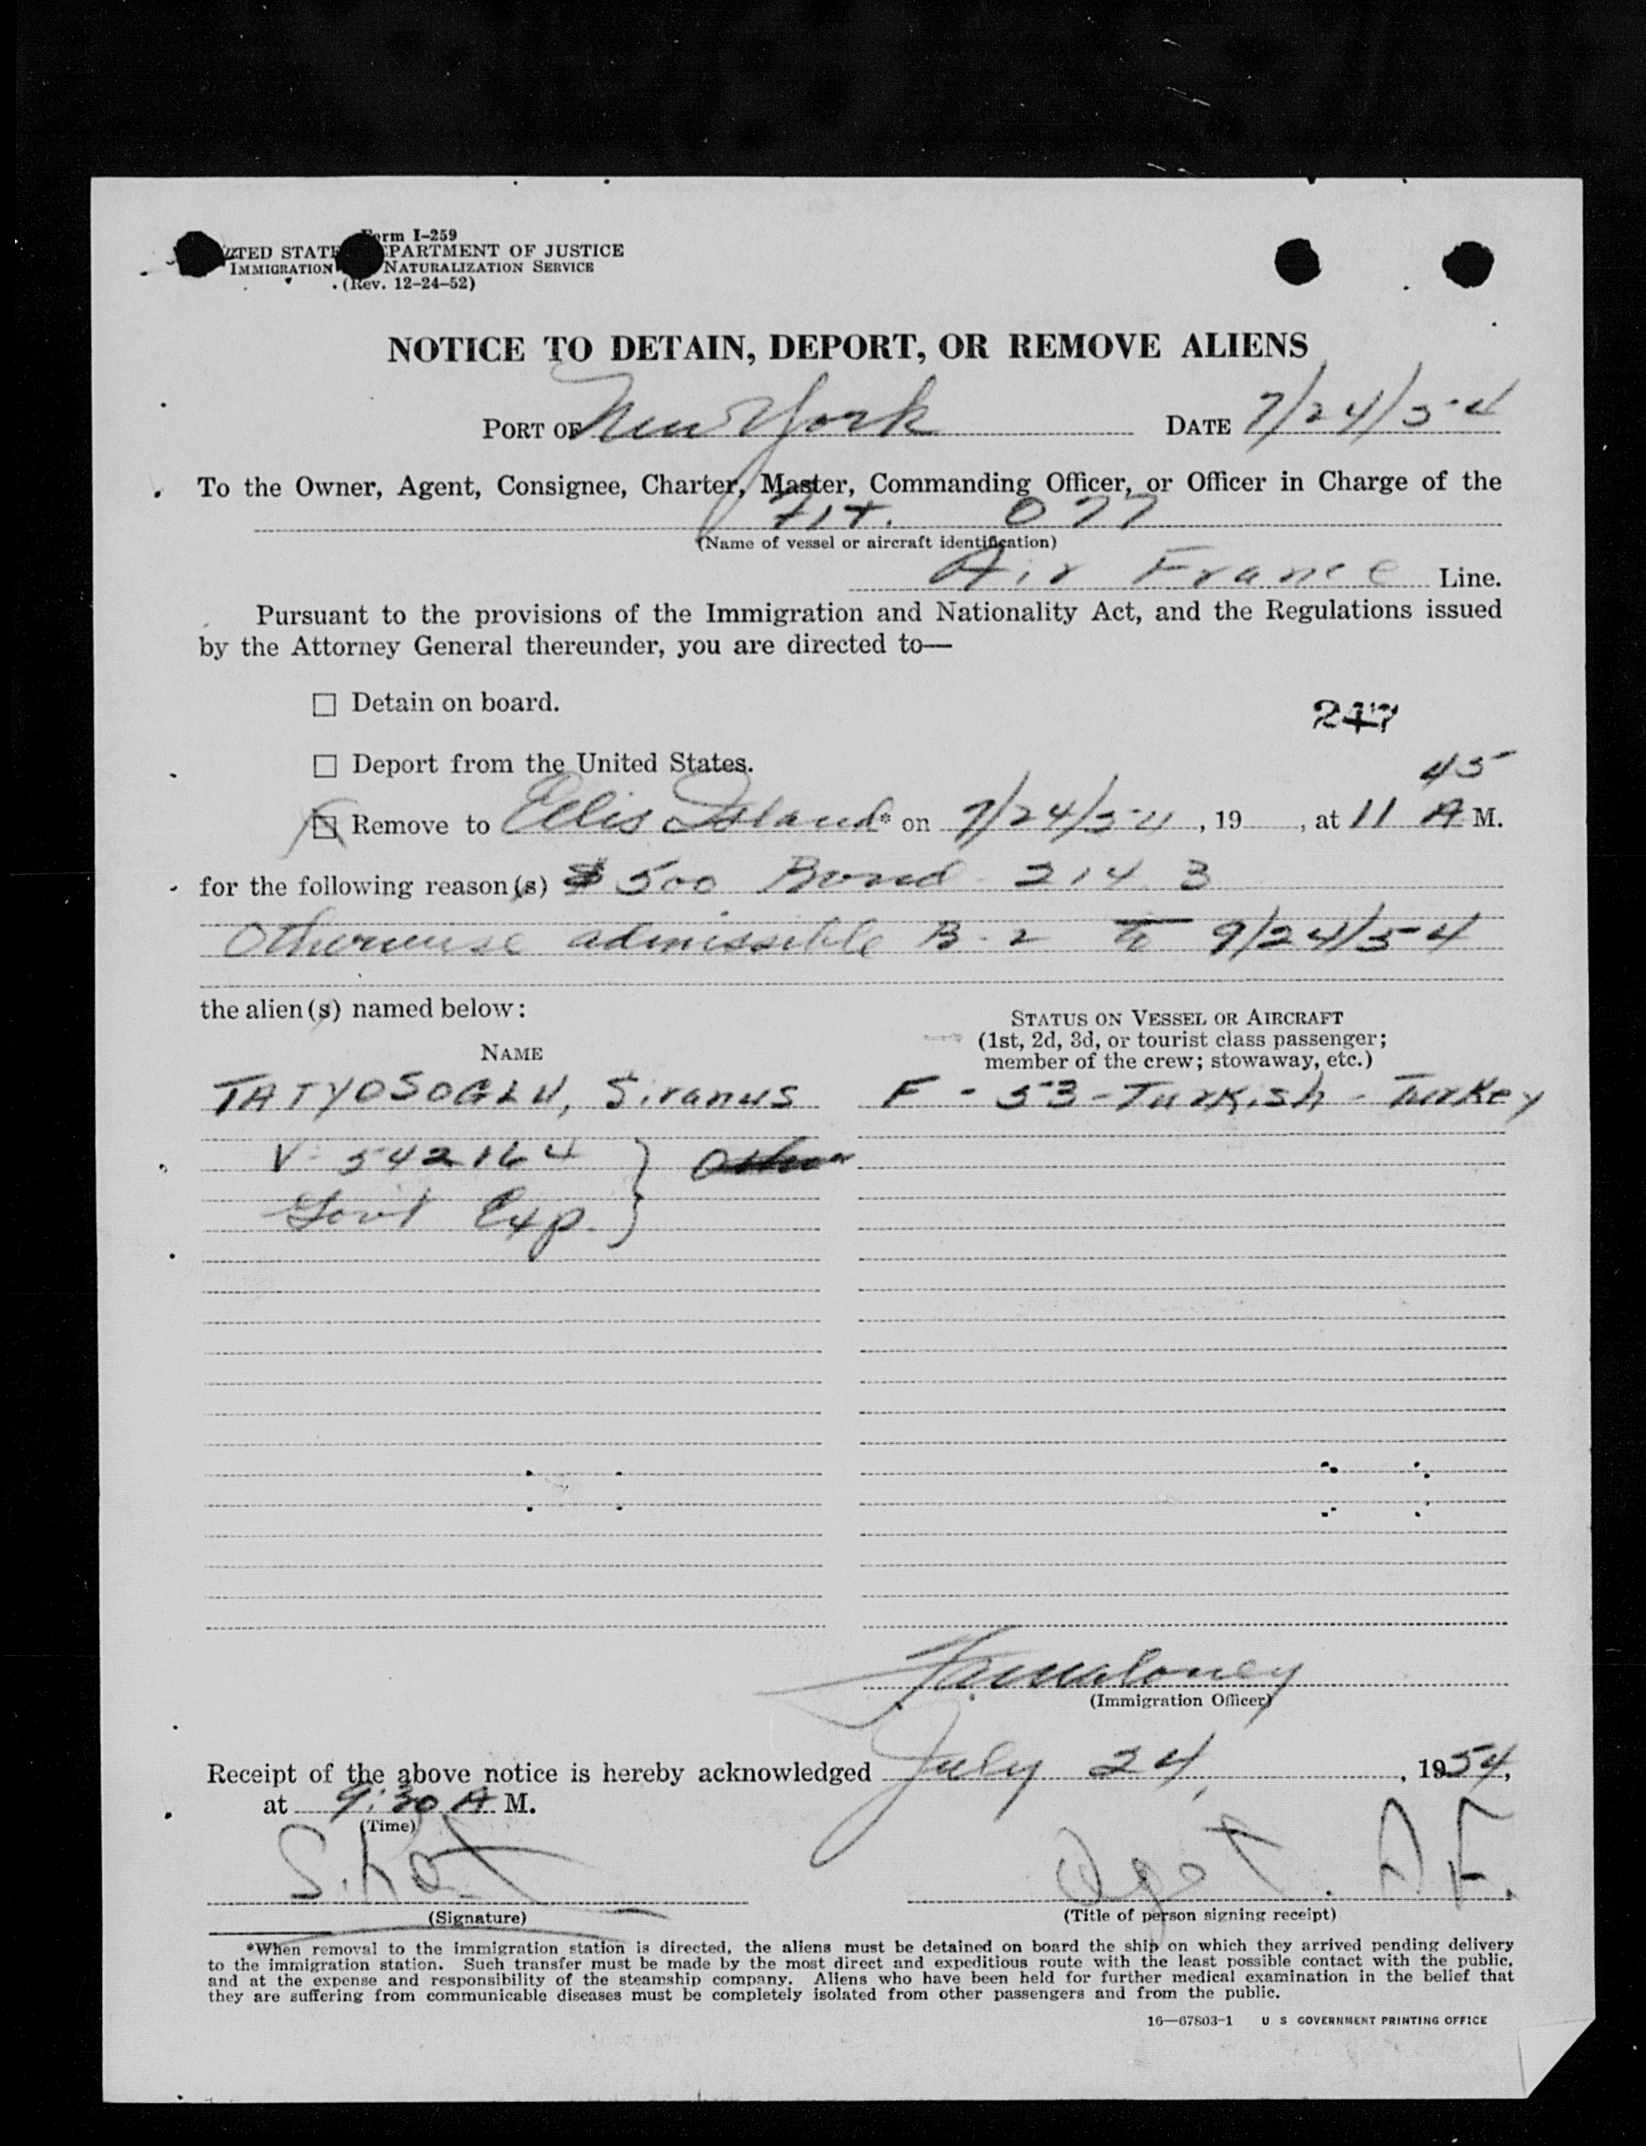 Form I-259
UNITED STATES DEPARTMENT OF JUSTICE
IMMIGRATION NATURALIZATION SERVICE
(Rev. 12-24-52)
NOTICE TO DETAIN, DEPORT, OR REMOVE ALIENS
PORT OF New York DATE 7/24/54
To the Owner, Agent, Consignee, Charter, Master, Commanding Officer, or Officer in Charge of the
Flt. 077
(Name of vessel or aircraft identification)
Air France Line.
Pursuant to the provisions of the Immigration and Nationality Act, and the Regulations issued
by the Attorney General thereunder, you are directed to—
☐ Detain on board.
247
☐ Deport from the United States.
☒ Remove to Ellis Island* on 7/24/54, 19, at 11 45 A M.
for the following reason(s) $500 Bond 214.3
Otherwise admissible B-2 to 9/24/54
the alien(s) named below:
NAME
STATUS ON VESSEL OR AIRCRAFT
(1st, 2d, 3d, or tourist class passenger;
member of the crew; stowaway, etc.)
TATYOSOGLU, Siranus F - 53 - Turkish - Turkey
V-542164
Govt Exp.
(Immigration Officer)
Receipt of the above notice is hereby acknowledged July 24, , 1954,
at 9:30 A M.
(Time)
Agt. A.F.
(Signature)
(Title of person signing receipt)
*When removal to the immigration station is directed, the aliens must be detained on board the ship on which they arrived pending delivery
to the immigration station. Such transfer must be made by the most direct and expeditious route with the least possible contact with the public,
and at the expense and responsibility of the steamship company. Aliens who have been held for further medical examination in the belief that
they are suffering from communicable diseases must be completely isolated from other passengers and from the public.
16—67803-1 U S GOVERNMENT PRINTING OFFICE